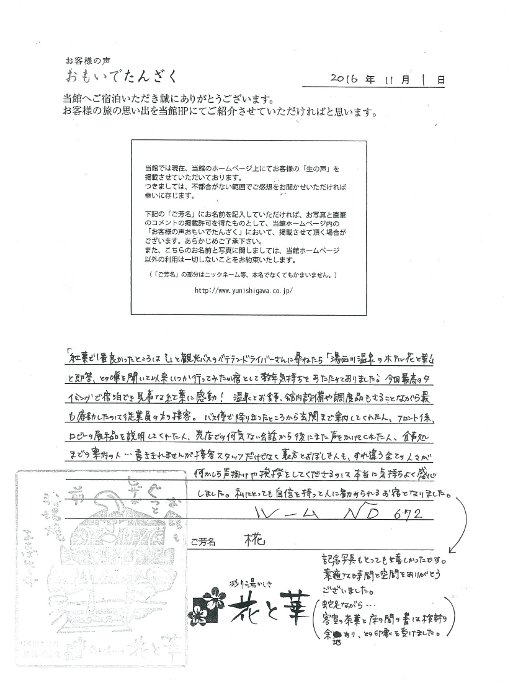 お客様の声
おもいでたんざく
2016 年 11 月 1 日
当館へご宿泊いただき誠にありがとうございます。
お客様の旅の思い出を当館HPにてご紹介させていただければと思います。
当館では現在、当館のホームページ上にてお客様の「生の声」を
掲載させていただいております。
つきましては、不都合がない範囲でご感想をお聞かせいただければ
幸いに存じます。
下記の「ご芳名」にお名前を記入していただければ、お写真と直筆
のコメントの掲載許可を得たものとして、当館ホームページ内の
「お客様の声おもいでたんざく」において、掲載させて頂く場合が
ございます。あらかじめご了承下さい。
また、こちらのお名前と写真に関しましては、当館ホームページ
以外の利用は一切しないことをお約束いたします。
(「ご芳名」の部分はニックネーム等、本名でなくてもかまいません。)
http://www.yunishigawa.co.jp/
「紅葉で1番良かったところは?」と観光バスのベテランドライバーさんに尋ねたら「湯西川温泉のホテル花と華」
と即答、との噂を聞いて以来いつか行ってみたい宿として数年気持ちをあたためておりました。今回最高のタ
イミングで宿泊でき見事な紅葉に感動! 温泉とお食事、館内設備や調度品もさることながら最
も感動したのって従業員の方の接客。バス停で降り立ったところから玄関まで案内してくれた人、フロント係、
ロビーの展示品を説明してくれた人、売店で何気ない会話から後にまた声をかけてくれた人、食事処
までの案内の人…書ききれませんが接客スタッフだけでなく裏方とおぼしき人も、すれ違う全ての人々が
何かしら声掛けや挨拶をしてくださるのって本当に気持ちよく感心
しました。私にとっても自信を持って人に勧められるお宿となりました。
ルーム NO 672
ご芳名 椛
記念写真もとっても嬉しかったです。
素適な時間と空間をありがとう
ございました。
蛇足ながら…
客室の茶菓と床の間の書は検討の
余地あり、との印象を受けました。
彩り湯かしき
花と華